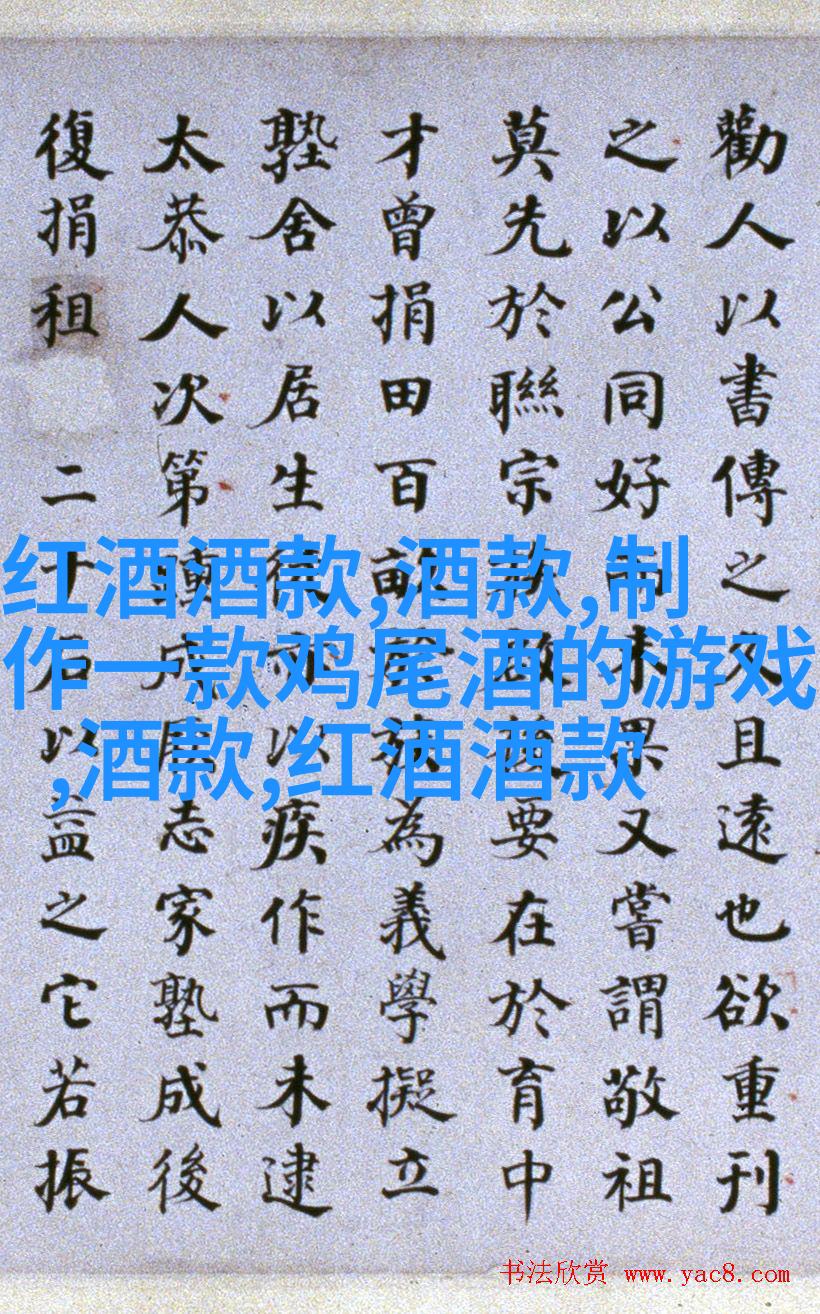 勸人以書傳之久且遠也欲重刊
之以公同好而未果又嘗謂敬祖
莫先於聯宗族要在於育中
才曾捐田百畝於族為義學擬立
塾舍以居生徒亦以疾作而未逮
太恭人次第成厥志家塾成後
復捐租二石以益之它若振
红酒酒款,酒款,制
作一款鸡尾酒的游戏
,酒款,红酒酒款
书法欣赏 www.yac8.com